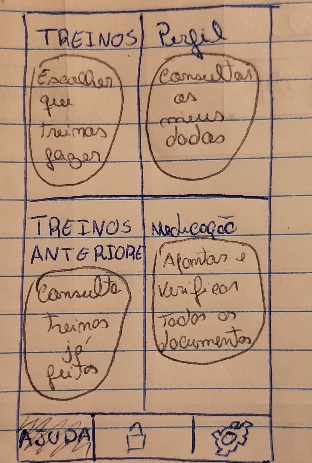 TREINOS
Escolher
que
treinos
fazer
Perfil
Consultar
os
meus
dados
TREINOS
ANTERIORE
Consulta
treinos
já
feitos
Medicação
Apontar e
Verificar
Todos os
documentos
AJUDA